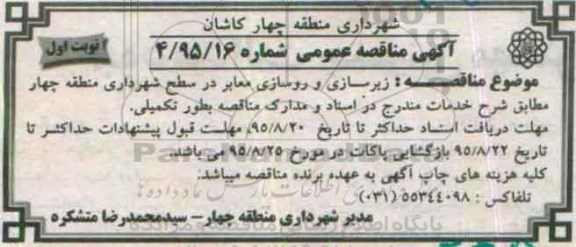 شهرداری منطقه چهار کاشان
آگهی مناقصه عمومی شماره ۴/۹۵/۱۶
نوبت اول
موضوع مناقصه : زیرسازی و روسازی معابر در سطح شهرداری منطقه چهار
مطابق شرح خدمات مندرج در اسناد و مدارک مناقصه بطور تکمیلی.
مهلت دریافت اسناد حداکثر تا تاریخ ۹۵/۸/۲۰، مهلت قبول پیشنهادات حداکثر تا
تاریخ ۹۵/۸/۲۲ بازگشایی پاکات در مورخ ۹۵/۸/۲۵ می باشد.
کلیه هزینه های چاپ آگهی به عهده برنده مناقصه میباشد.
تلفاکس : ۵۵۳۴۴۰۹۸ (۰۳۱)
مدیر شهرداری منطقه چهار – سیدمحمدرضا متشکره